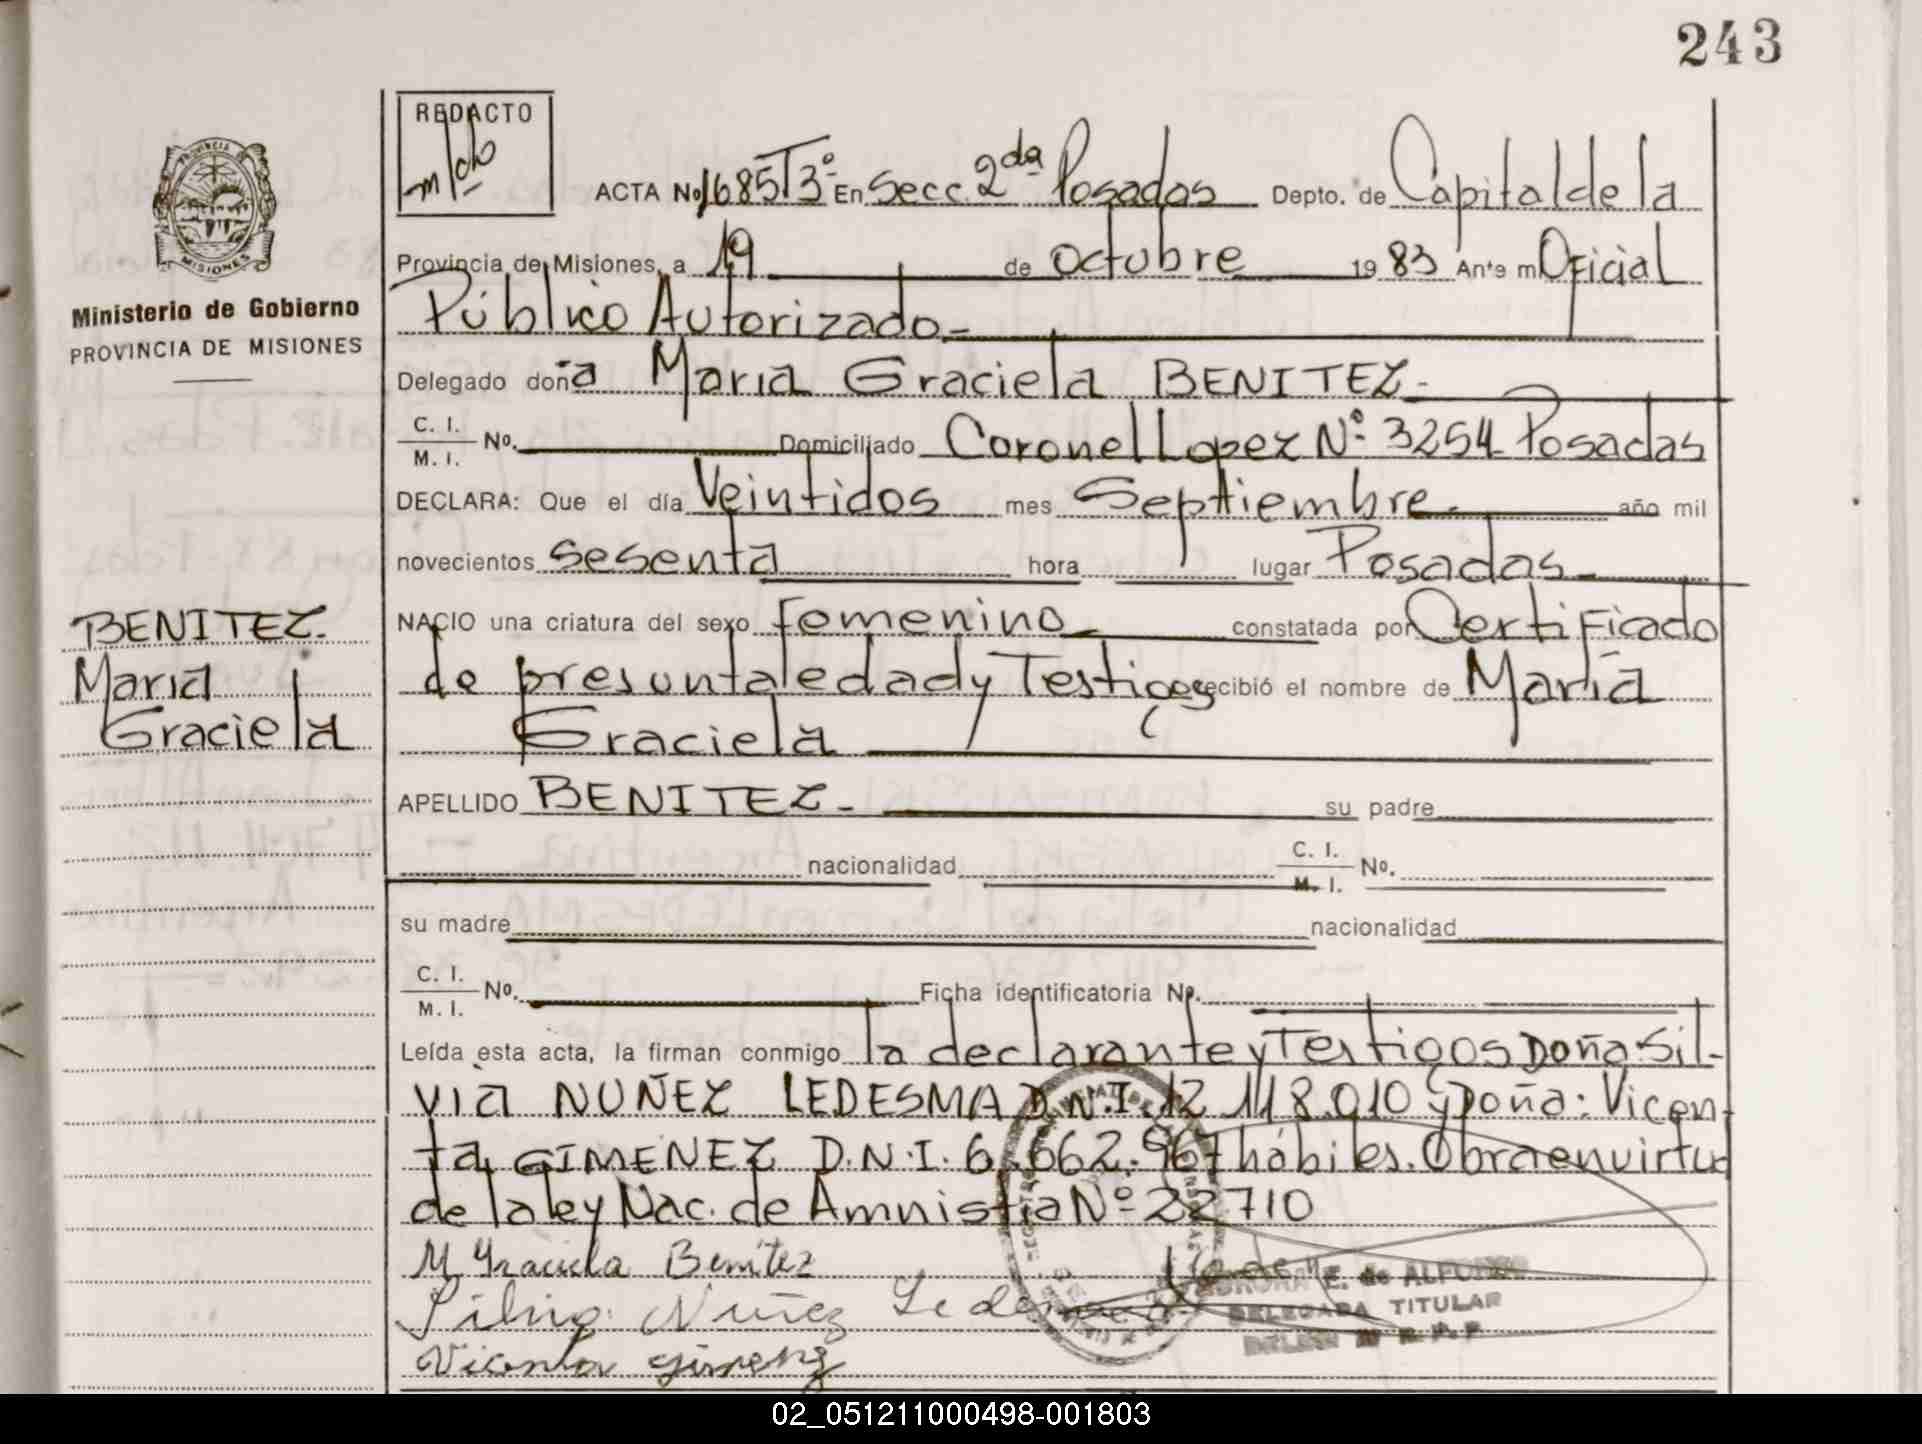 243
REDACTO
ACTA No 1685 T 3º En Secc. 2da Posadas Depto. de Capital de la
PROVINCIA DE
MISIONES
Provincia de Misiones, a 19 de octubre 19 83 Ante mi Oficial
Ministerio de Gobierno
Público Autorizado.-
PROVINCIA DE MISIONES
Delegado doña Maria Graciela BENITEZ.-
C. I.
M. I. No. Domiciliado Coronel Lopez Nº 3254 Posadas
DECLARA: Que el día Veintidos mes Septiembre.- año mil
novecientos sesenta hora lugar Posadas.-
NACIO una criatura del sexo femenino constatada por Certificado
BENITEZ.
Maria
Graciela
de presunta edad y Testigos recibió el nombre de María
Graciela
APELLIDO BENITEZ.- su padre
nacionalidad C. I.
M. I. No.
su madre nacionalidad
C. I.
M. I. No. Ficha identificatoria No.
Leída esta acta, la firman conmigo la declarante y Testigos Doña: Sil-
via NUÑEZ LEDESMA D.N.I. 12.118.010 y Doña: Vicen-
ta GIMENEZ D.N.I. 6.662.967 hábiles. Obra en virtud
de la ley Nac. de Amnistia Nº 22710
M Graciela Benitez
Silvia Nuñez Ledesma
E. de ALFONSO
DELEGADA TITULAR
Vicenta Gimenez
02_051211000498-001803